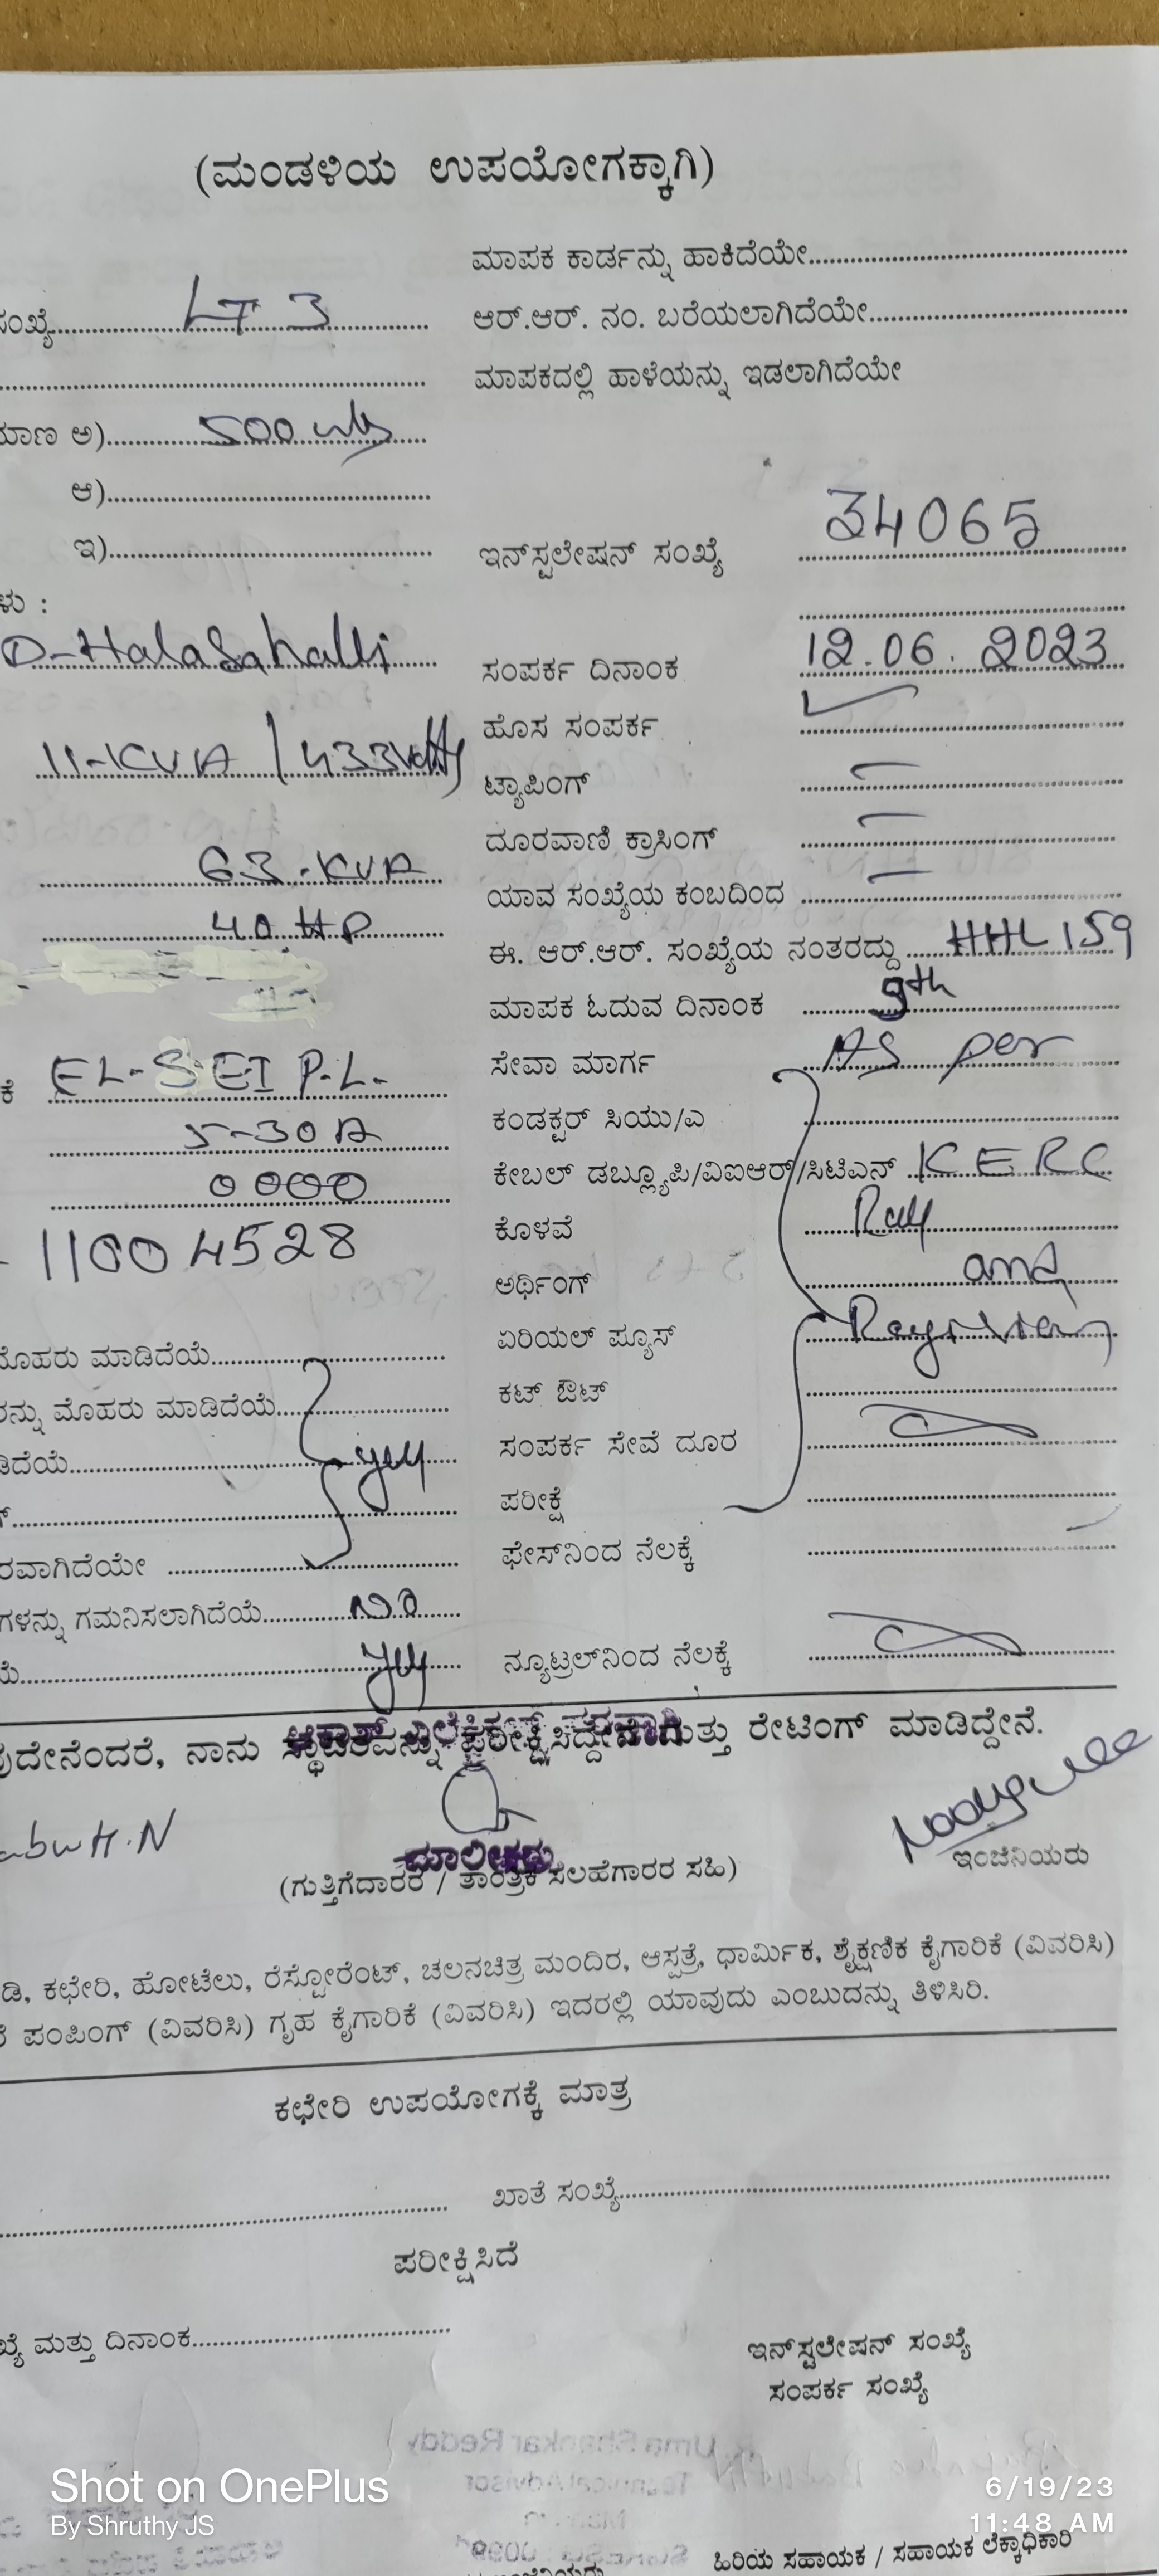 (ಮಂಡಳಿಯ ಉಪಯೋಗಕ್ಕಾಗಿ)
ಮಾಪಕ ಕಾರ್ಡನ್ನು ಹಾಕಿದೆಯೇ
ಸಂಖ್ಯೆ LT 3 ಆರ್.ಆರ್. ನಂ. ಬರೆಯಲಾಗಿದೆಯೇ
ಮಾಪಕದಲ್ಲಿ ಹಾಳೆಯನ್ನು ಇಡಲಾಗಿದೆಯೇ
ಮಾಣ ಅ) 500
ಆ)
ಇ) ಇನ್‌ಸ್ಟಲೇಷನ್ ಸಂಖ್ಯೆ 34065
ಳು :
ಸಂಪರ್ಕ ದಿನಾಂಕ 12.06.2023
ಹೊಸ ಸಂಪರ್ಕ ✓
11-KVA / 433 ಟ್ಯಾಪಿಂಗ್ –
ದೂರವಾಣಿ ಕ್ರಾಸಿಂಗ್ –
63-KVA ಯಾವ ಸಂಖ್ಯೆಯ ಕಂಬದಿಂದ –
40 HP ಈ. ಆರ್.ಆರ್. ಸಂಖ್ಯೆಯ ನಂತರದ್ದು HHL 159
ಮಾಪಕ ಓದುವ ದಿನಾಂಕ 9th
ಕೆ EL-SEI P.L- ಸೇವಾ ಮಾರ್ಗ As per
5-30A ಕಂಡಕ್ಟರ್ ಸಿಯು/ಎ
0000 ಕೇಬಲ್ ಡಬ್ಲ್ಯೂಪಿ/ವಿಐಆರ್/ಸಿಟಿಎನ್ KERC
- 11004528 ಕೊಳವೆ
ಅರ್ಥಿಂಗ್ and
ಮೊಹರು ಮಾಡಿದೆಯೆ ಏರಿಯಲ್ ಪ್ಯೂಸ್
ರನ್ನು ಮೊಹರು ಮಾಡಿದೆಯೆ ಕಟ್ ಔಟ್
ಡಿದೆಯೆ ಸಂಪರ್ಕ ಸೇವೆ ದೂರ
ಪರೀಕ್ಷೆ
ರವಾಗಿದೆಯೇ ಫೇಸ್‌ನಿಂದ ನೆಲಕ್ಕೆ
ಗಳನ್ನು ಗಮನಿಸಲಾಗಿದೆಯೆ No
ಯೆ ನ್ಯೂಟ್ರಲ್‌ನಿಂದ ನೆಲಕ್ಕೆ
ವುದೇನೆಂದರೆ, ನಾನು ಸ್ಥಾವರವನ್ನು ಪರೀಕ್ಷಿಸಿದ್ದೇನೆ ಮತ್ತು ರೇಟಿಂಗ್ ಮಾಡಿದ್ದೇನೆ.
H.N
ಮಾಲೀಕರು
ಇಂಜಿನಿಯರು
(ಗುತ್ತಿಗೆದಾರರ / ತಾಂತ್ರಿಕ ಸಲಹೆಗಾರರ ಸಹಿ)
ಡಿ, ಕಛೇರಿ, ಹೋಟೆಲು, ರೆಸ್ಟೋರೆಂಟ್, ಚಲನಚಿತ್ರ ಮಂದಿರ, ಆಸ್ಪತ್ರೆ, ಧಾರ್ಮಿಕ, ಶೈಕ್ಷಣಿಕ ಕೈಗಾರಿಕೆ (ವಿವರಿಸಿ)
ಪಂಪಿಂಗ್ (ವಿವರಿಸಿ) ಗೃಹ ಕೈಗಾರಿಕೆ (ವಿವರಿಸಿ) ಇದರಲ್ಲಿ ಯಾವುದು ಎಂಬುದನ್ನು ತಿಳಿಸಿರಿ.
ಕಛೇರಿ ಉಪಯೋಗಕ್ಕೆ ಮಾತ್ರ
ಖಾತೆ ಸಂಖ್ಯೆ
ಪರೀಕ್ಷಿಸಿದೆ
ಖ್ಯೆ ಮತ್ತು ದಿನಾಂಕ
ಇನ್‌ಸ್ಟಲೇಷನ್ ಸಂಖ್ಯೆ
ಸಂಪರ್ಕ ಸಂಖ್ಯೆ
Shot on OnePlus
By Shruthy JS
6/19/23
11:48 AM
ಹಿರಿಯ ಸಹಾಯಕ / ಸಹಾಯಕ ಲೆಕ್ಕಾಧಿಕಾರಿ